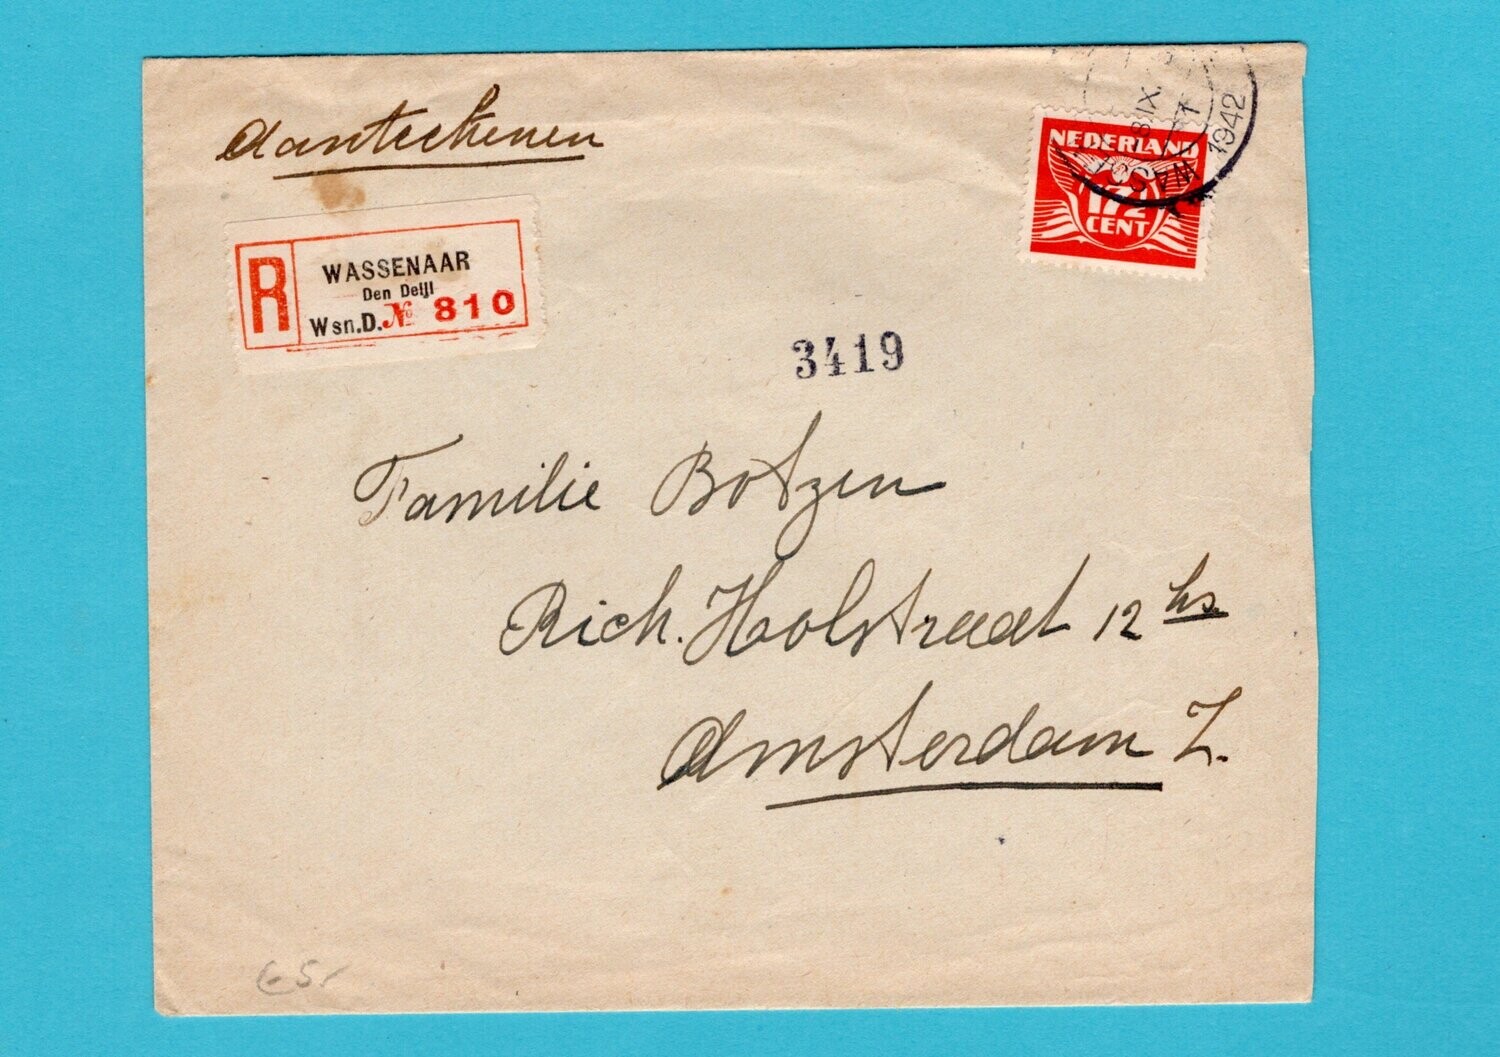 Aanteekenen
R
WASSENAAR
Den Deijl
Wsn.D. № 810
NEDERLAND
17½
CENT
IX.
1942
3419
Familie Botzen
Rich. Holstraat 12 hs.
Amsterdam Z.